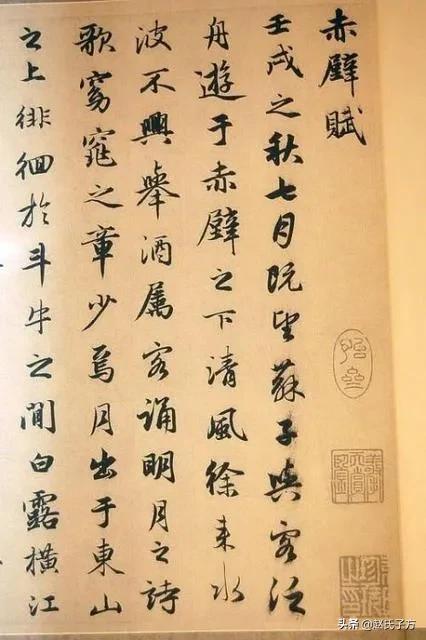 赤壁賦
壬戌之秋七月既望蘇子與客泛
舟遊于赤壁之下清風徐来水
波不興舉酒属客誦明月之詩
歌窈窕之章少焉月出于東山
之上徘徊於斗牛之間白露横江
头条 @赵氏子方